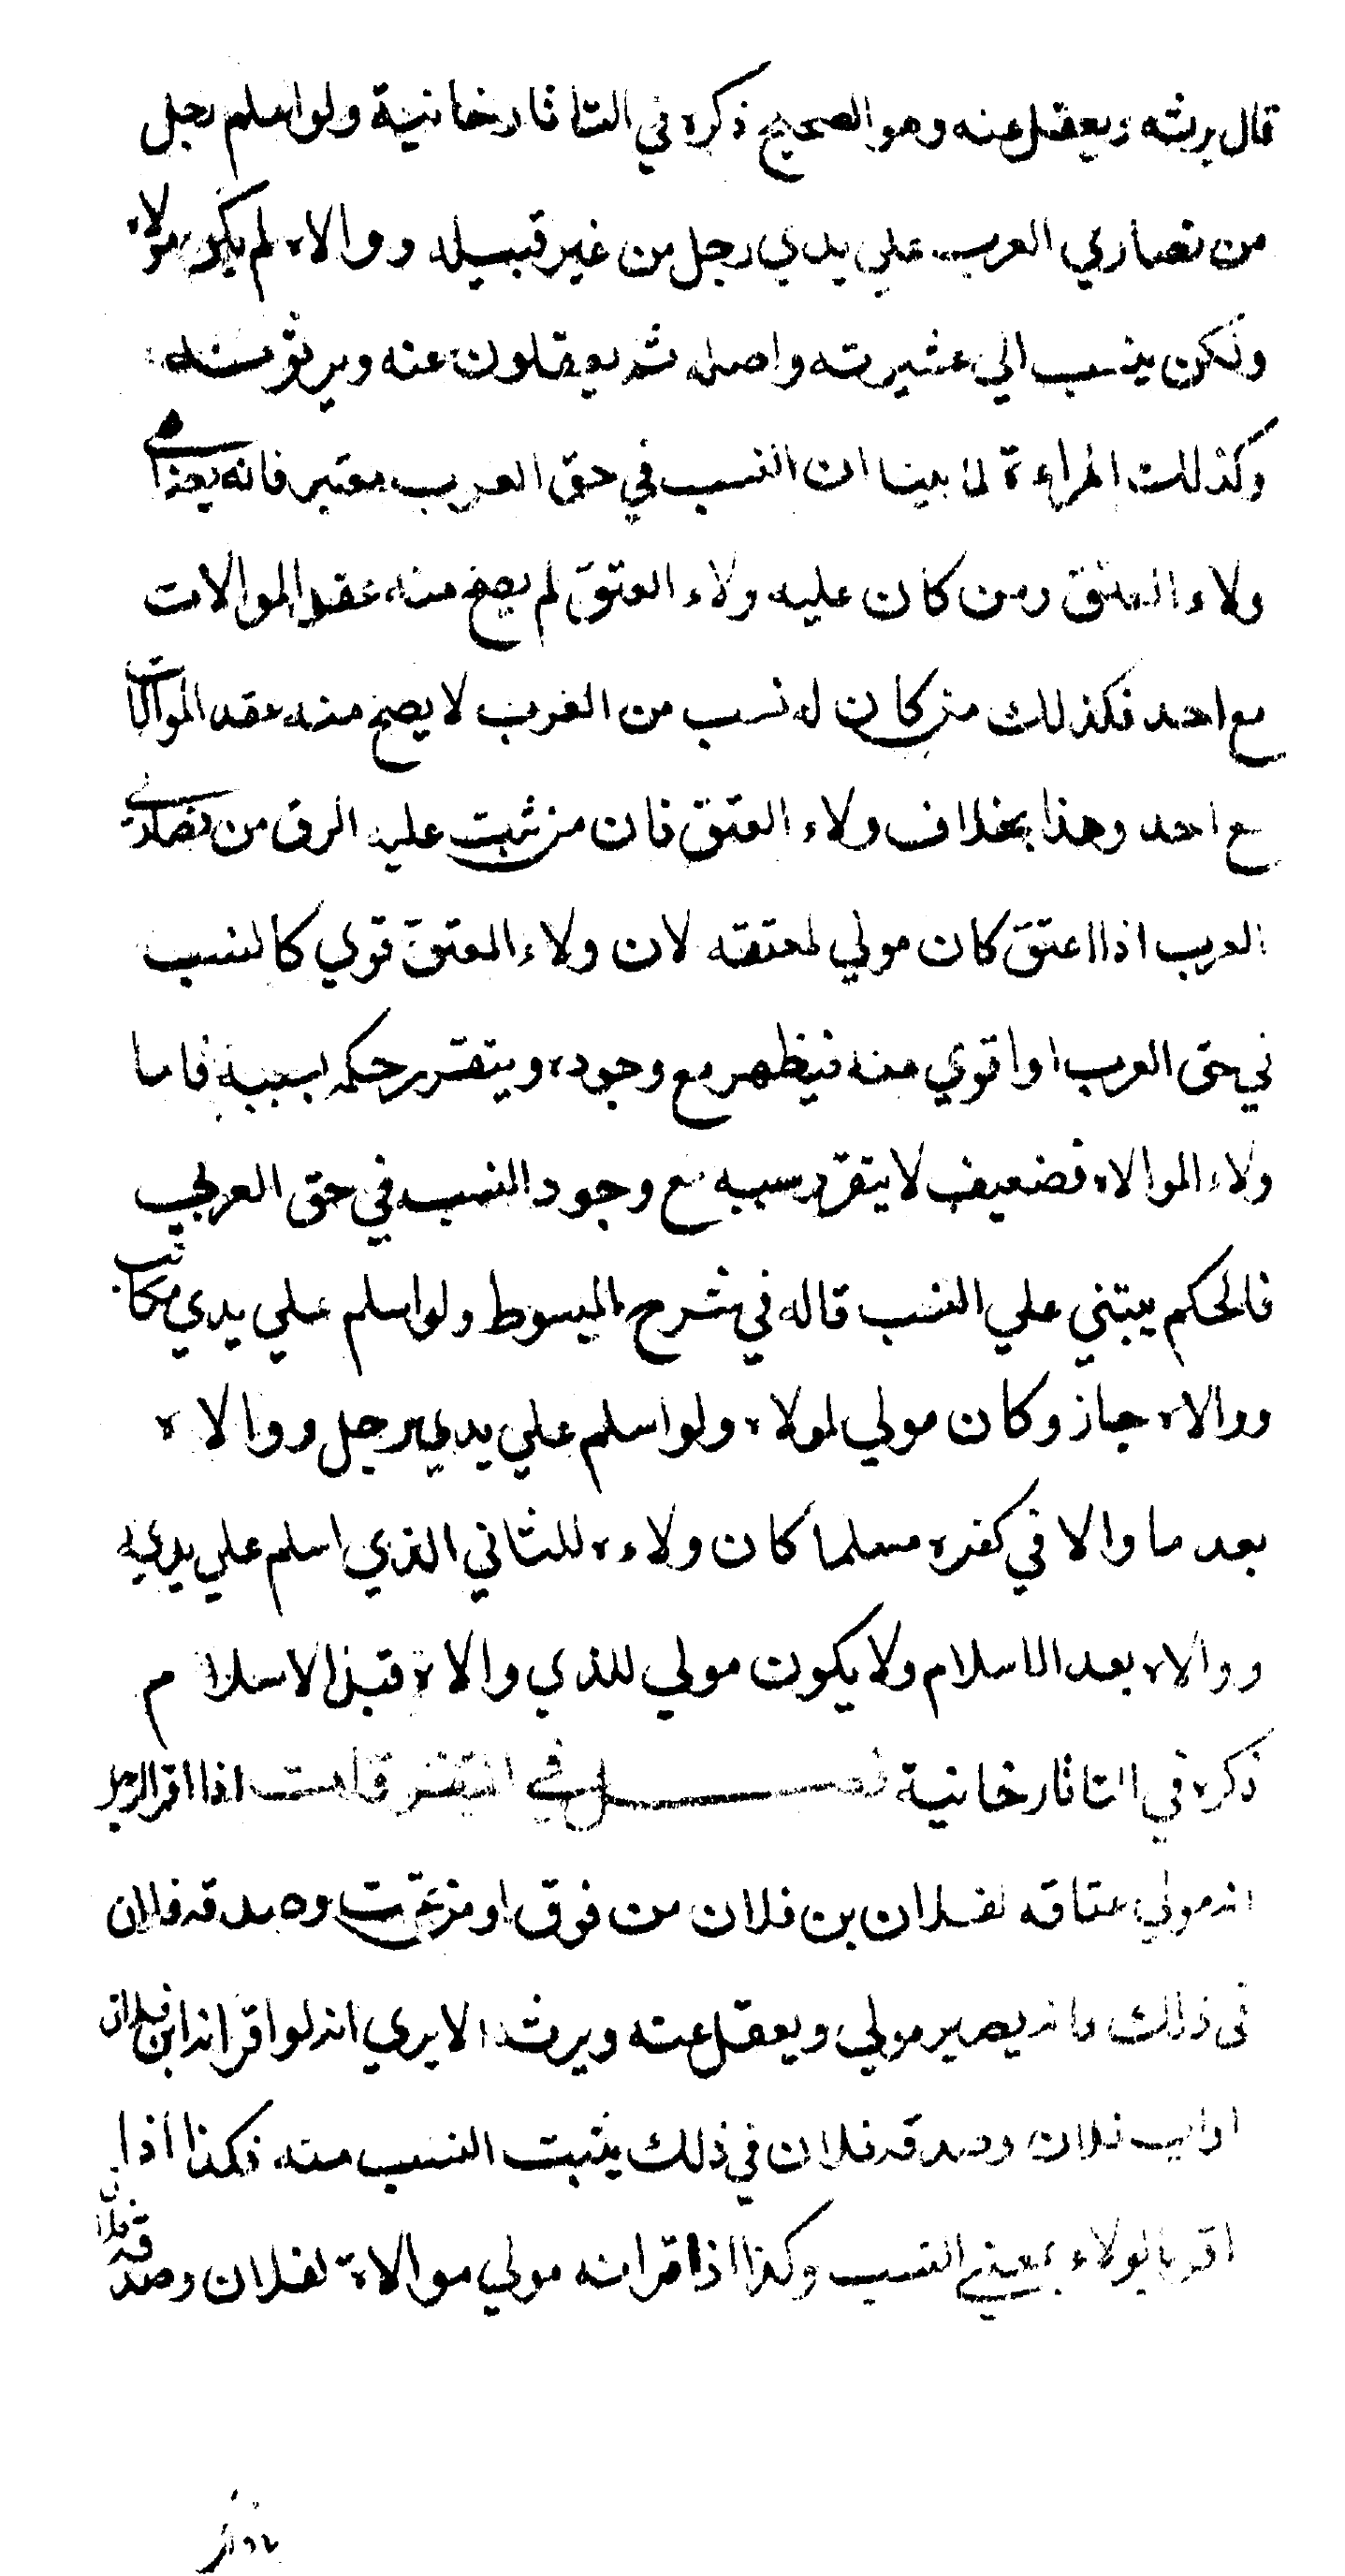 قال يرثه ويعقل عنه وهو الصحيح ذكره في التاتارخانية ولو اسلم رجل
من نصاري العرب علي يدي رجل من غير قبيلة ووالاه لم يكن مولاه
ولكن ينسب الي عشيرته واصله ثم يعقلون عنه ويرثونه
وكذلك المراءة لما بينا ان النسب في حق العرب معتبر فانه
ولاء العتق ومن كان عليه ولاء العتق لم يصح منه عقد الموالات
مع احد فكذلك من كان له نسب من العرب لا يصح منه عقد الموالات
مع احد وهذا بخلاف ولاء العتق فان من ثبت عليه الرق من نصاري
العرب اذا اعتق كان مولي لمعتقه لان ولاء العتق قوي كالنسب
في حق العرب او اقوي منه فيظهر مع وجوده ويتقرر حكمه بسببه فاما
ولاء الموالاه فضعيف لا يتقرر سببه مع وجود النسب في حق العربي
فالحكم يبتني علي النسب قاله في شرح المبسوط ولو اسلم علي يدي مكاتب
ووالاه جاز وكان مولي لمولاه ولو اسلم علي يدي رجل ووالاه
بعد ما والا في كفره مسلما كان ولاءه للثاني الذي اسلم علي يديه
ووالاه بعد الاسلام ولا يكون مولي للذي والاه قبل الاسلام
ذكره في التاتارخانية فصل في قلت اذا اقر الرجل
انه مولي عتاقه لفلان بن فلان من فوق او من تحت وصدقه فلان
في ذلك فانه يصير مولي ويعقل عنه ويرثه الا يري انه لو اقر انه ابن فلان
او اب فلان وصدقه فلان في ذلك يثبت النسب منه فكذا اذا
اقر بالولاء بمعني النسب وكذا اذا اقر انه مولي موالاة لفلان وصدقه فلان